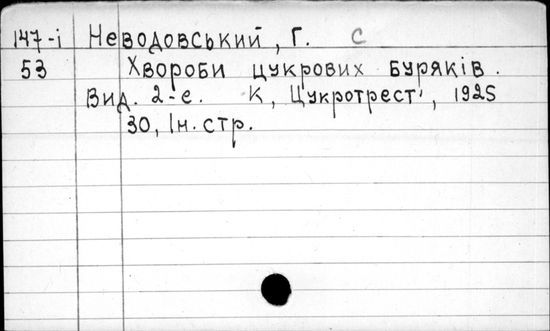 147-і Неводовський, Г. С
53 Хвороби цукрових буряків.
Вид. 2-е. К, Цукротрест', 1925
30, Ін. стр.